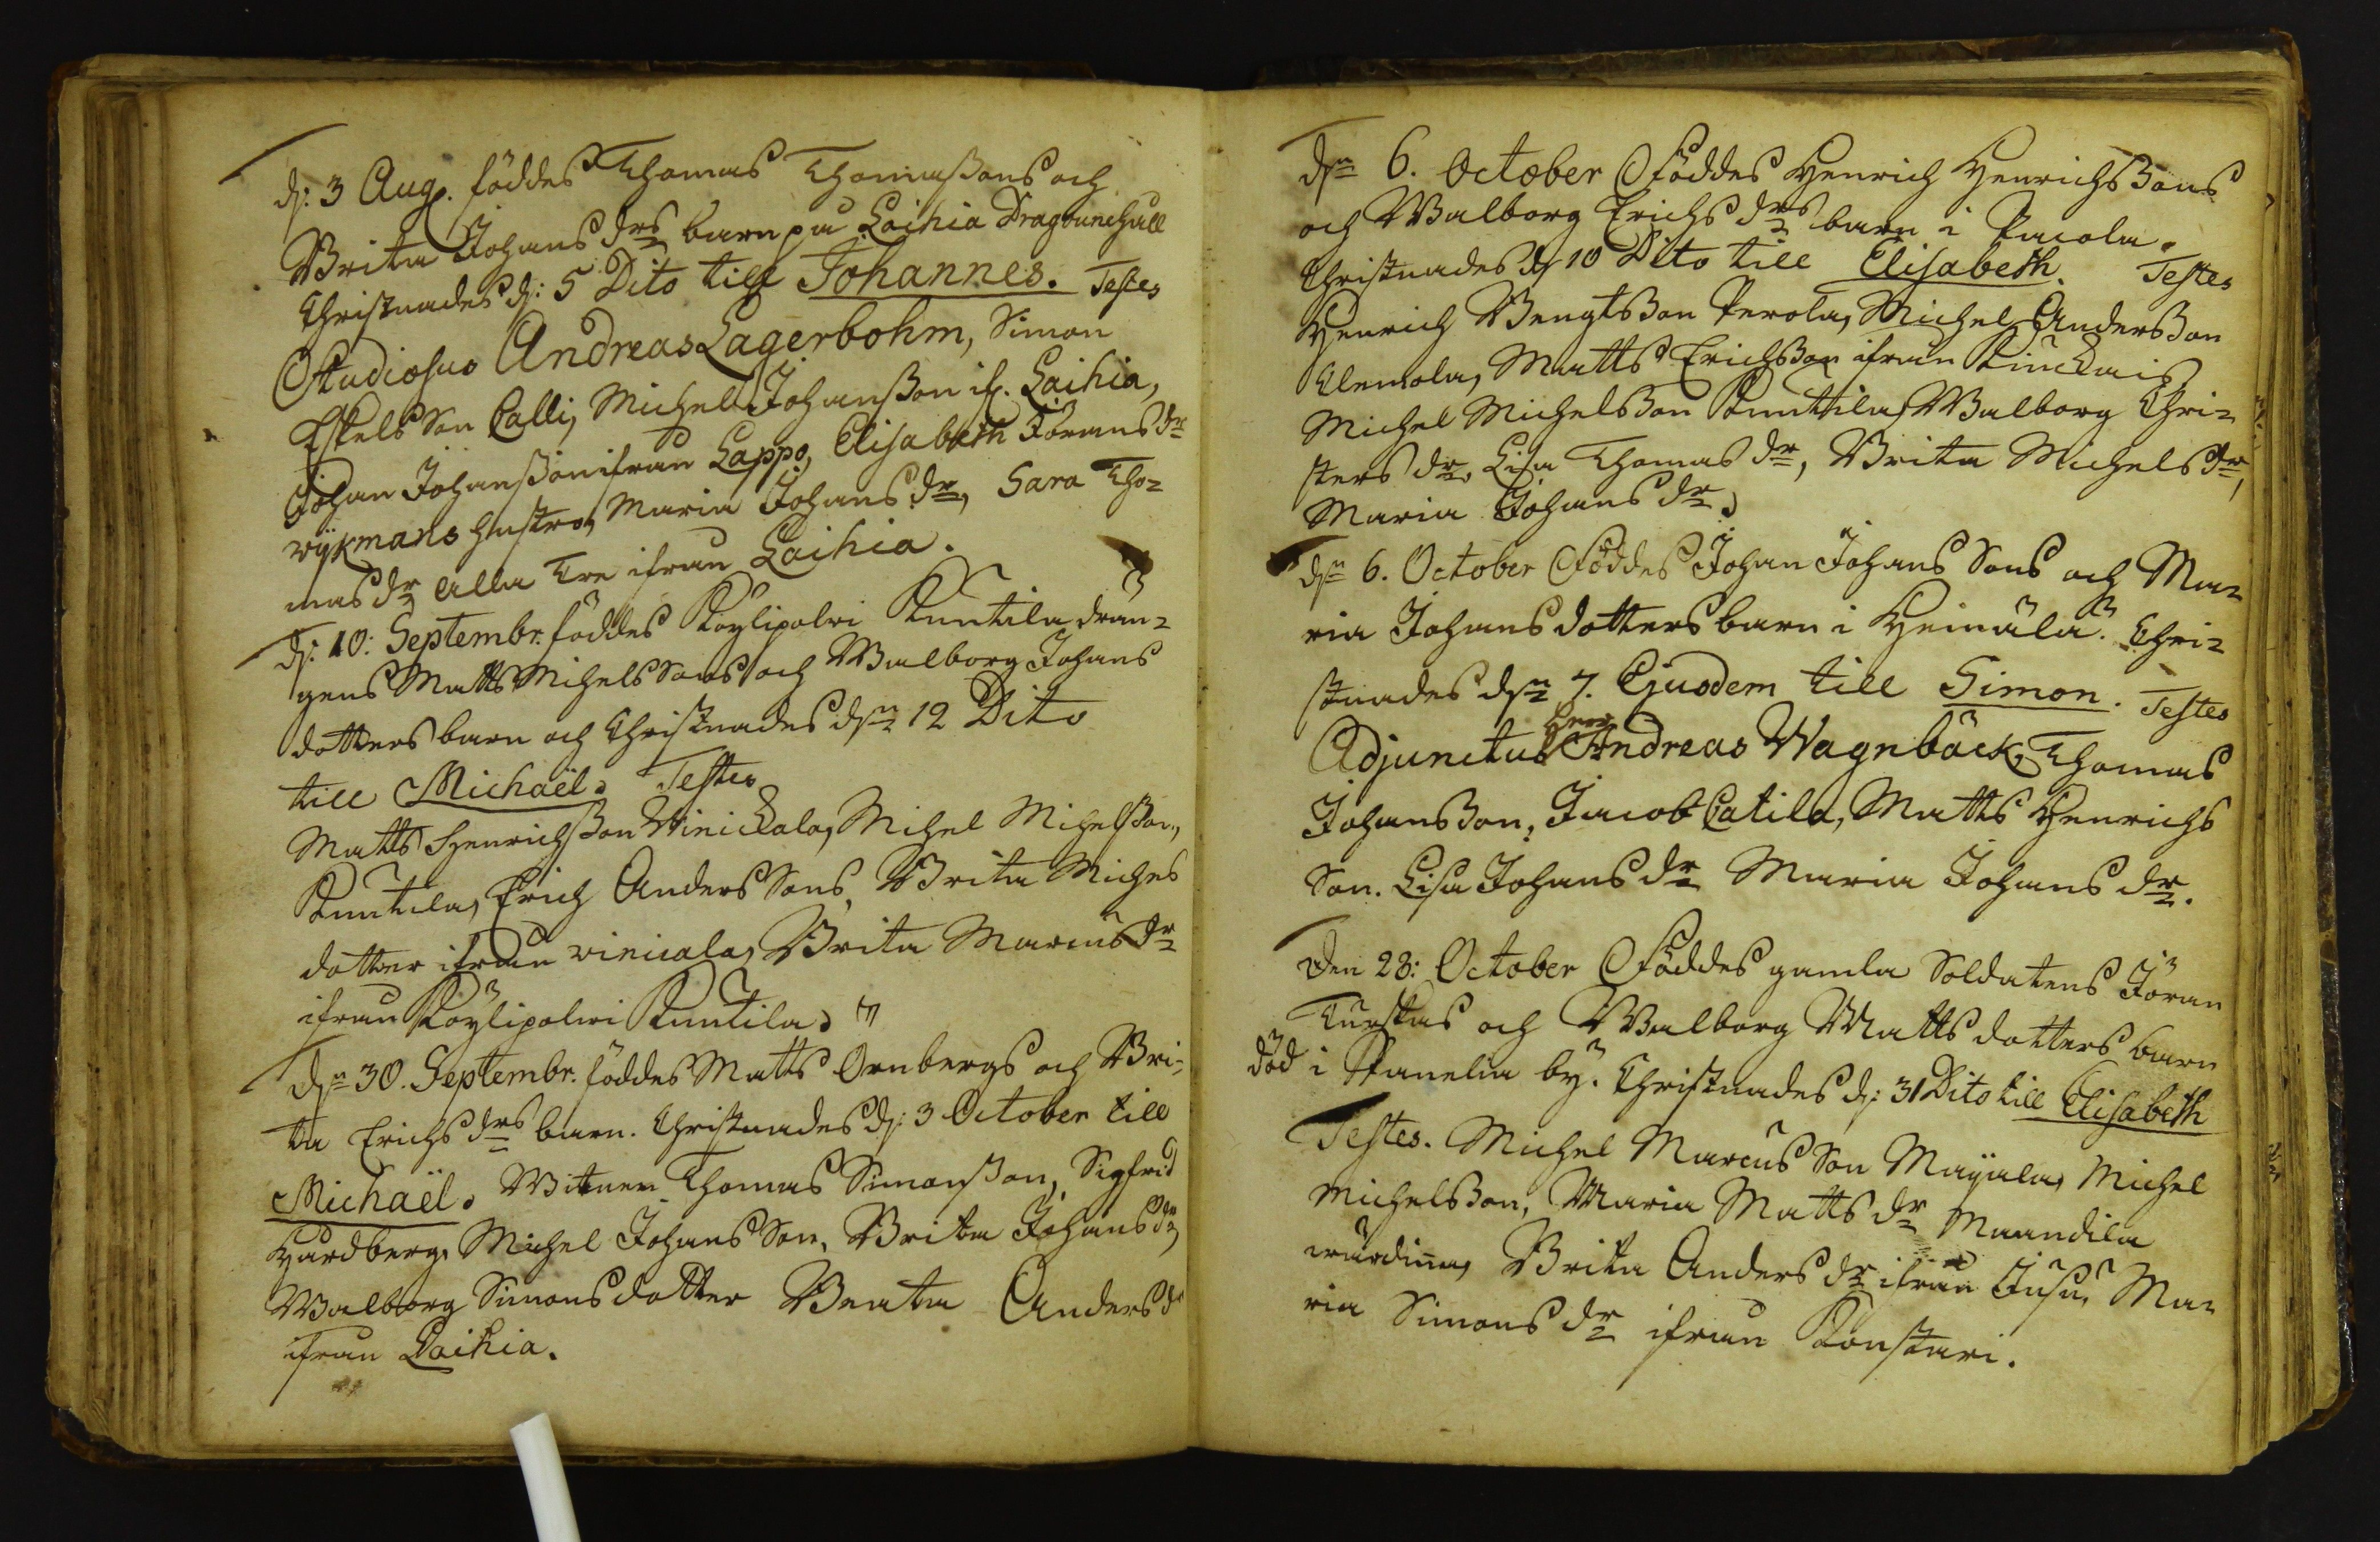 d: 3 Aug. föddes Thomas Thomaßons och
Brita Johans drs barn på Laihia Dragounehåll
Christnades d: 5 Dito till Johannes. Testes
Studiosus Andreas Lagerbohm, Simon
Eskels Son Calli, Michel Johanßon if. Laihia,
Johan Johanßon ifrån Lappo, Elisabeth Görans dr
wijkmans hustro, Maria Johans dr, Sara Tho-
mas dr alla tre ifrån Laihia.
d: 10: Septembr. föddes Köylipolvi Knutila drän-
gens Matts Mihels Sons och Walborg Johans
dotters barn och Christnades dn 12 Dito
till Michaël. Testes
Matts Henrichßon Vinickala, Mihel Mihelßon,
Knutila, Erich Anders Sons, Brita Michels
dotter ifrån vinicala, Brita Marcus dr
ifrån Köylipolvi Knutila.
dn 30. Septembr. föddes Matts Ornbergs och Bri-
ta Erichs drs barn. Christnades d: 3 October till
Michaël. Witner Thomas Simonßon, Sigfrid
Hårdberg, Michel Johans Son, Brita Johans dr
Walborg Simons dotter Beata Anders dr
ifrån Laihia.
dn 6. October Föddes Henrich Henrichs Sons
och Walborg Erichs drs barn i Pacola.
Christnades d 10 Dito till Elisabeth. Testes
Henrich Bengtsßon Perola, Michel Anderßon
Clemola, Matts Erichßon ifrån Kinckais
Michel Michelsßon Knuttila, Walborg Chri-
sters dr, Lisa Thomas dr, Brita Michels dr,
Maria Johans dr.
dn 6. October Föddes Johan Johans Sons och Ma-
ria Johans dotters barn i Heinälä. Chri-
stnades dn 7. Ejusdem till Simon. Testes
Adjunctus Herr Andreas Wagnbäck, Thomas
Johansson, Jacob Catila, Matts Henrichs
Son. Lisa Johans dr Maria Johans dr.
Den 28: October Föddes gamla Soldatens Jöran
Turskas och Walborg Matts dotters barn
död i Kanelia by. Christnades d: 31 Dito till Elisabeth
Testes. Michel Marcus Son Mayala, Michel
Michelsßon, Maria Matts dr Maandila
wärdinna, Brita Anders dr ifrån Jusu, Ma-
ria Simons dr ifrån Konstari.